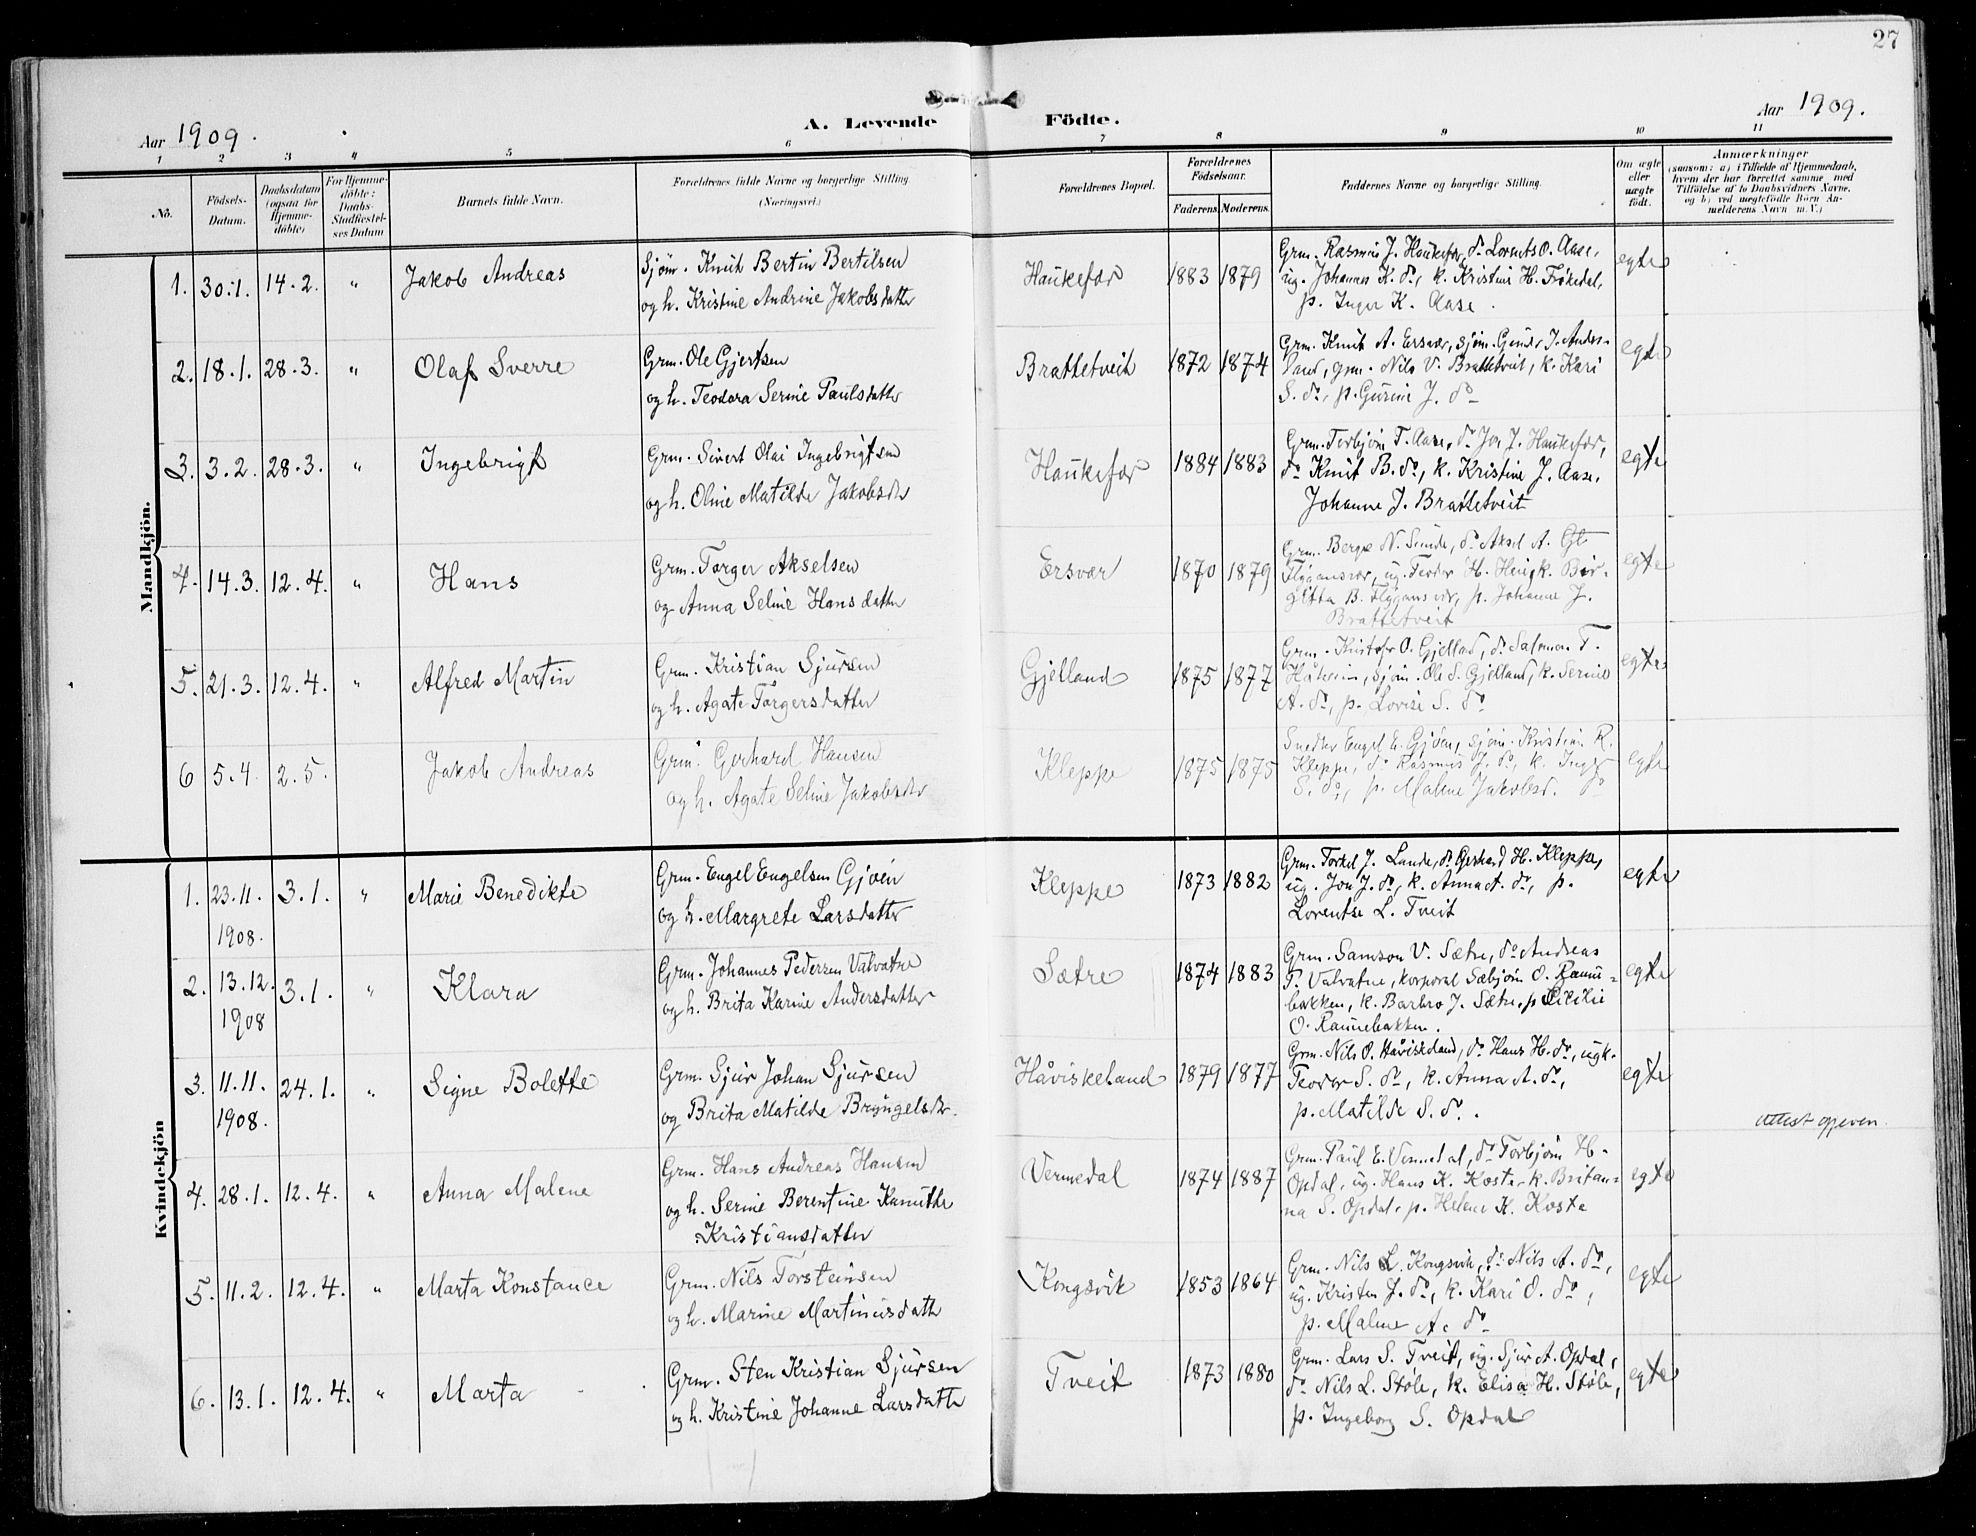 27
Aar 1909.
A. Levende Födte.
Aar 1909.
1 2 3 4 5 6 7 8 9 10 11
No.
Födsels-Datum.
Daabsdatum (ogsaa for Hjemmedöbte)
For Hjemmedöbte: Daabs-Stadfæstelses Datum
Barnets fulde Navn.
Forældrenes fulde Navne og borgerlige Stilling (Næringsvei.)
Forældrenes Bopæl.
Forældrenes Födselsaar.
Faderens. Moderens.
Faddernes Navne og borgerlige Stilling.
Om ægte eller uægte födt.
Anmærkninger
(saasom: a) i Tilfælde af Hjemmedaab, hvem der har forrettet samme med Tilföielse af to Daabsvidners Navne, og b) ved uægtefödte Börn Anmelderens Navn m. V.)
Mandkjön.
1. 30.1. 14.2. " Jakob Andreas
Sjøm. Knut Bertin Bertilsen
og h. Kristine Andrine Jakobsdatter
Haukefær 1883 1879
Grm. Rasmus J. Haukefær, do Lorents O. Aase,
ug. Johannes K. do, k. Kristine H. Frøkedal,
p. Inger K. Aase.
egte
2. 18.1. 28.3. " Olaf Sverre
Grm. Ole Gjertsen
og h. Teodora Serine Paulsdatter
Brattetveit 1872 1874
Grm. Knut A. Ersvær, sjøm. Gunder J. Anders-
land, grm. Nils V. Brattetveit, k. Kari
S. do, p. Gurine J. do
egte
3. 3.2. 28.3. " Ingebrigt
Grm. Sivert Olai Ingebrigtsen
og h. Oline Matilde Jakobsdtr
Haukefær 1884 1883
Grm. Torbjørn T. Aase, do Jon J. Haukefær,
do Knut B. do, k. Kristine J. Aase,
Johanne J. Brattetveit
egte
4. 14.3. 12.4. " Hans
Grm. Torger Akselsen
og Anna Seline Hansdatter
Ersvær 1870 1879
Grm. Berge N. Sunde, do Aksel A.
Flygansvær, ug. Teodor H.
gitta B. Flygansvær, p. Johanne J.
Brattetveit
egte
5. 21.3. 12.4. " Alfred Martin
Grm. Kristian Sjursen
og h. Agate Torgersdatter
Gjelland 1875 1877
Grm. Kristofer O. Gjelland, do Salomon T.
sjøm. Ole S. Gjelland, k. Serine
A. do, p. Lovise S. do
egte
6 5.4. 2.5. Jakob Andreas
Grm. Gerhard Hansen
og h. Agate Seline Jakobsdtr
Kleppe 1875 1875
Snedker Engel E. Gjøen, sjøm. Kristian R.
Kleppe, do Rasmus J. do, k. Inger
S. do, p. Malene Jakobsd. do
egte
Kvindekjön
1. 23.11. 1908. 3.1. " Marie Benedikte
Grm. Engel Engelsen Gjøen
og h. Margrete Larsdatter
Kleppe 1873 1882
Grm. Torkel J. Lunde, do Gerhard H. Kleppe,
ug. Jon J. do, k. Anna A. do, p.
Lorentse L. Tveit
egte
2. 13.12. 1908 3.1. " Klara
Grm. Johannes Pedersen Valvatne
og h. Brita Karine Andersdatter
Sætre 1874 1883
Grm. Samson V. Sætre, do Andreas
P. Valvatne, korporal Sæbjørn O. Raune-
bakken, k. Barbro J. Sætre, p. Cecilie
O. Raunebakken.
egte
3. 11.11. 1908. 24.1. " Signe Bolette
Grm. Sjur Johan Sjursen
og Brita Matilde Bryngelsdtr.
Håviskeland 1879 1877
Grm. Nils O. Håviskeland, do Hans H. do, ugk.
Teodor S. do, k. Anna A. do,
p. Matilde S. do.
egte
Attest opgiven.
4. 28.1. 12.4. " Anna Malene
Grm. Hans Andreas Hansen
og h. Serine Berentine Kanutte
Kristiansdatter
Vermedal 1874 1887
Grm. Paul E. Vermedal, do Torbjørn H.
Opdal, ug. Hans K. Koste, k. Britan-
na S. Opdal, p. Helene K. Koste
egte
5. 11.2. 12.4. " Marta Konstance
Grm. Nils Torsteinsen
og h. Marine Martinusdatter
Kongsvik 1853 1864
Grm. Nils L. Kongsvik, do Nils A. do,
ug. Kristen J. do, k. Kari O. do,
p. Malene A. do
egte
6. 13.1. 12.4. " Marta
Grm. Sten Kristian Sjursen
og h. Kristine Johanne Larsdatter
Tveit 1873 1880
Grm. Lars S. Tveit, ug. Sjur A. Opdal,
do Nils L. Støle, k. Elisa H. Støle,
p. Ingeborg S. Opdal
egte